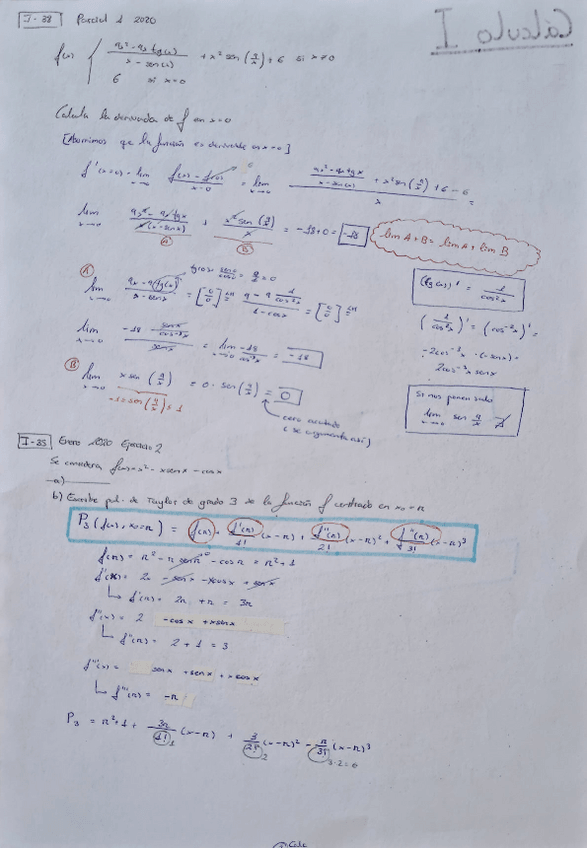 I-38 Parcial 1 2020
Cálculo I
f(x) { (9x² - 9x tg(x)) / (x - sen(x)) + x² sen(9/x) + 6 si x≠0
6 si x=0
Calcula la derivada de f en x=0
[Asumimos que la función es derivable en x=0]
f'(x=0) = lim x→0 (f(x) - f(0)) / (x-0) = lim x→0 ((9x² - 9x tgx) / (x - sen(x)) + x² sen(9/x) + 6 - 6) / x =
lim x→0 (9x² - 9x tgx) / (x(x - senx)) + (x² sen(9/x)) / x = -18+0 = -18
A
B
lim A+B = lim A + lim B
A
lim x→0 (9x - 9tg(x)) / (x - senx) = [0/0] = (9 - 9 1/cos²x) / (1 - cosx) = [0/0] =
(tg(x))' = 1/cos²x
(1/cos²x)' = (cos⁻²x)' =
-2cos⁻³x · (-senx) =
2cos⁻³x senx
lim x→0 -18 senx/cos³x / senx = lim x→0 -18/cos³x = -18
B
lim x→0 x sen(9/x) = 0 · sen(9/x) = 0
-1≤sen(9/x)≤1
cero acotado
(se argumenta así)
Si nos ponen solo
lim x→0 sen 9/x ∄
I-35 Enero 2020 Ejercicio 2
Se considera f(x)=x² - xsenx - cosx
a)
b) Escribe pol. de Taylor de grado 3 de la función f centrado en x0=π
P3(f(x), x0=π) = f(π) + f'(π)/1! (x-π) + f''(π)/2! (x-π)² + f'''(π)/3! (x-π)³
f(π) = π² - π senπ - cosπ = π²+1
f'(x) = 2x - senx - xcosx + senx
f'(π) = 2π + π = 3π
f''(x) = 2 -cosx + xsinx
f''(π) = 2 + 1 = 3
f'''(x) = senx + senx + xcosx
f'''(π) = -π
P3 = π²+1 + 3π/1! (x-π) + 3/2! (x-π)² - π/3! (x-π)³
1
2
3·2=6